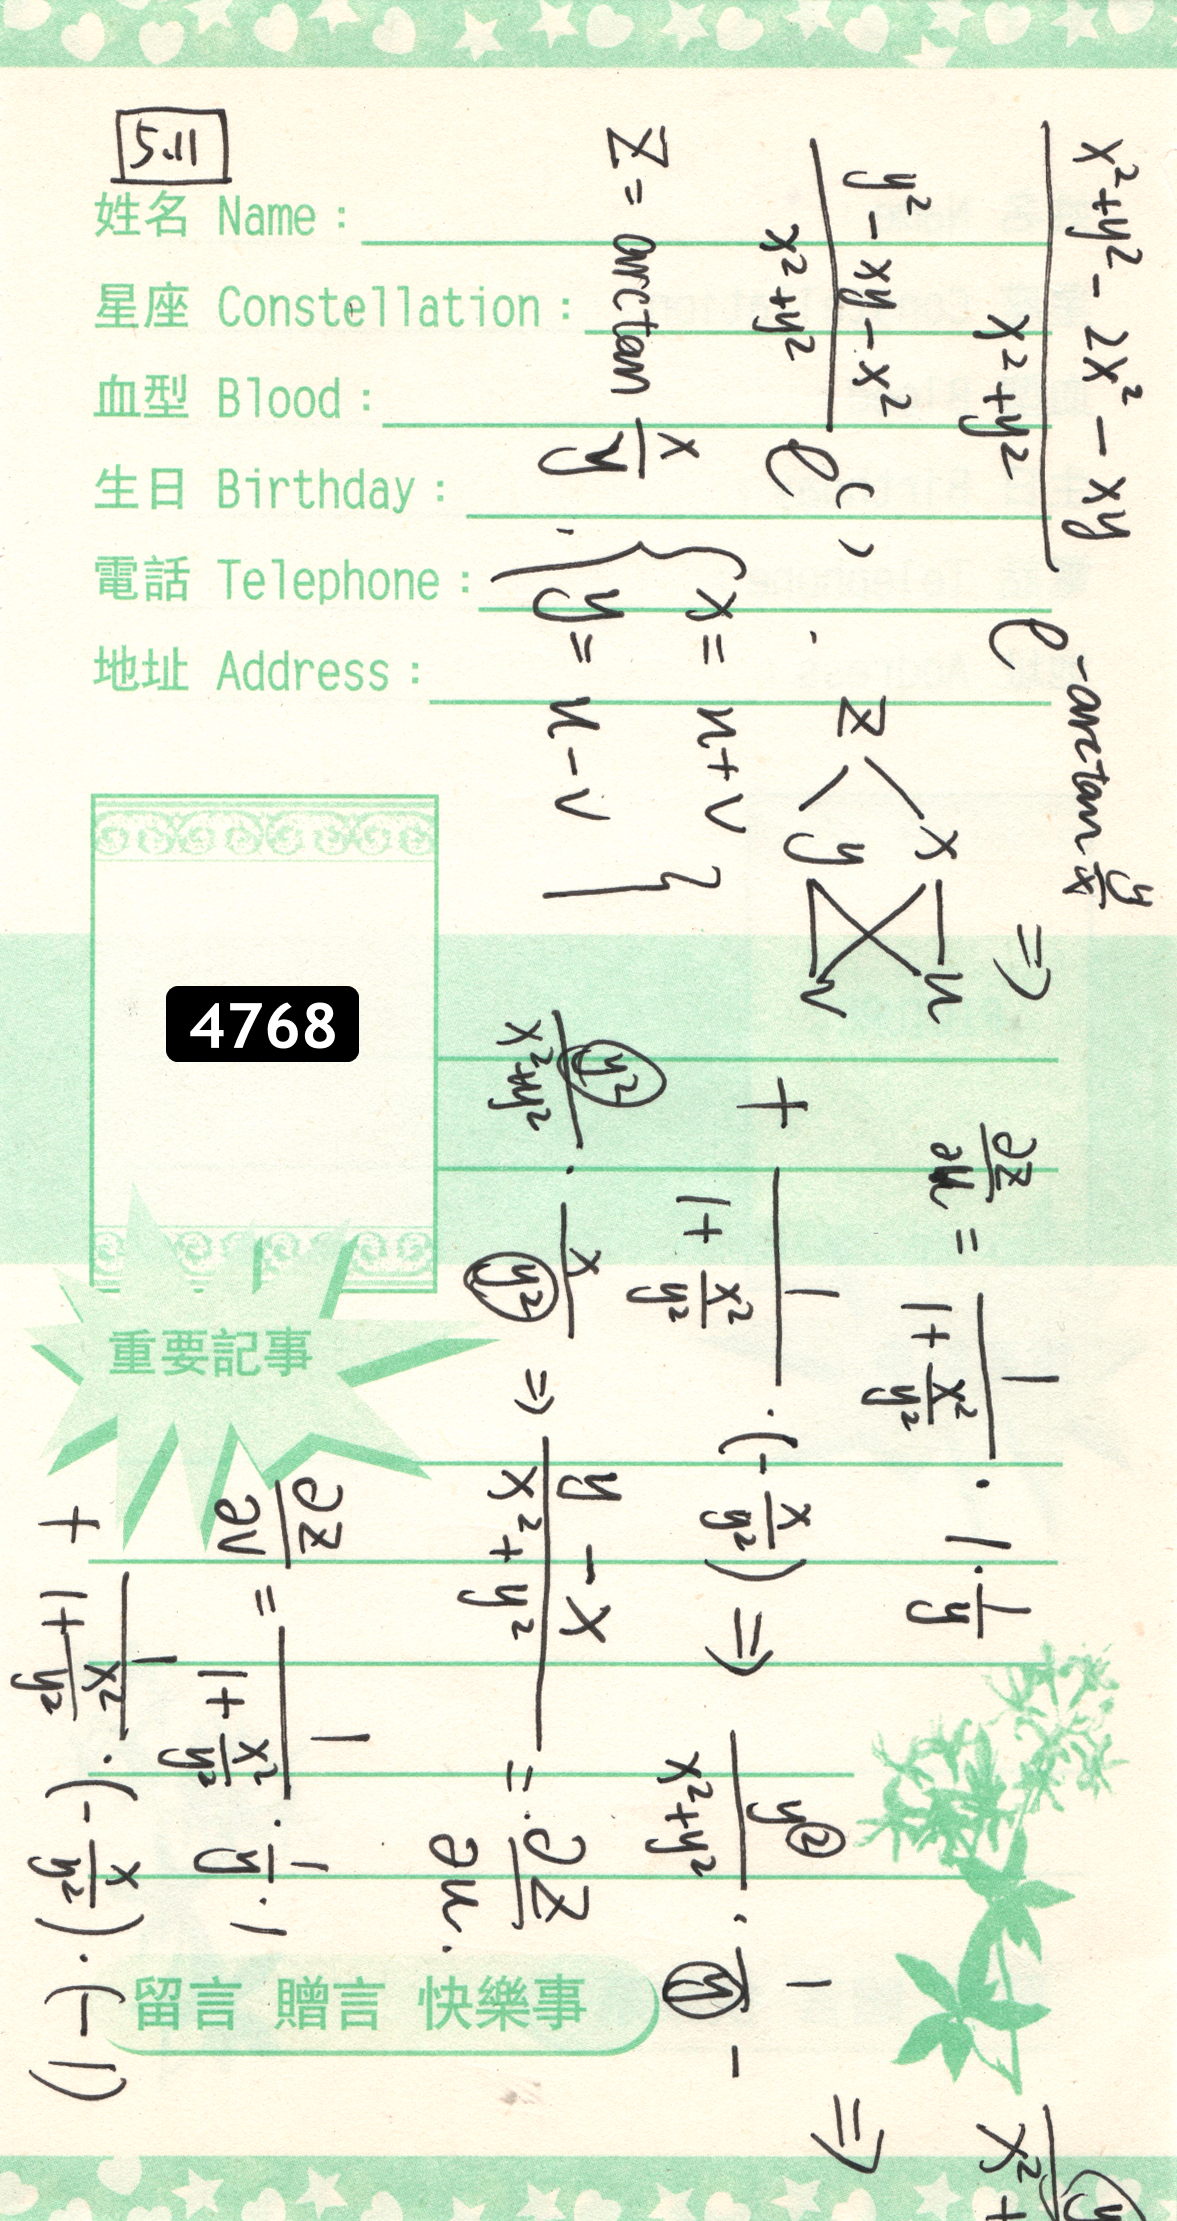 5.11
姓名 Name：
星座 Constellation：
血型 Blood：
生日 Birthday：
電話 Telephone：
地址 Address：
4768
重要記事
留言 贈言 快樂事
(x²+y² - 2x² - xy)/(x²+y²) e^(-arctan y/x) ⇒
(y² - xy - x²)/(x²+y²) e^( ) .
z = arctan x/y , { x = u+v
y = u-v }
z x y u v
∂z/∂u = 1/(1+x²/y²) · 1 · 1/y
+ 1/(1+x²/y²) · (-x/y²) ⇒ y²/(x²+y²) · 1/y -
y²/(x²+y²) · x/y² ⇒ (y - x)/(x²+y²) = ∂z/∂u.
∂z/∂v = 1/(1+x²/y²) · 1/y · 1
+ 1/(1+x²/y²) · (-x/y²) · (-1)
⇒